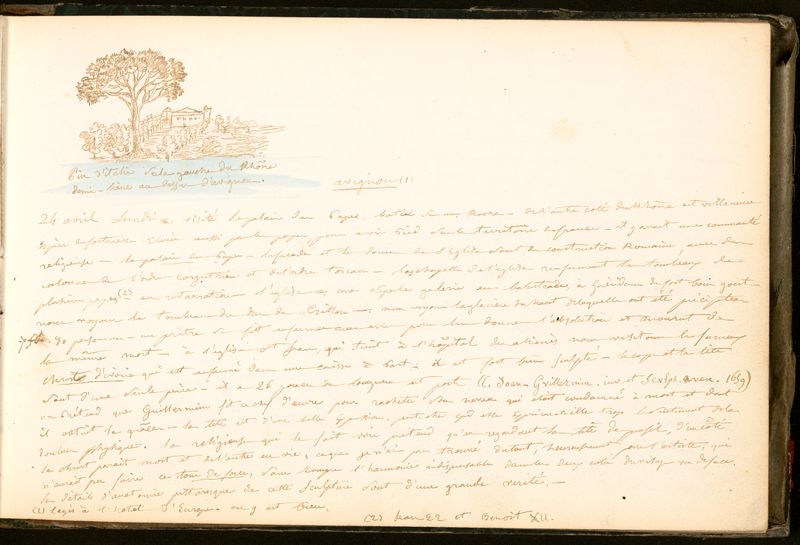 Pin d'italie de la gauche du Rhône
demi-lieue au dessus d'avignon.
avignon (1)
24 avril Lundi visité le palais des Papes. batis sur un Rocher - de l'autre coté du Rhône est villeneuve
espèce de forteresse élevée aussi par les papes pour avoir pied sur le territoire de france - il y avait une communauté
religieuse - le palais des Papes - la façade et le dome de l'Eglise sont de construction Romaine, avec des
colonnes de l'ordre corynthien et de l'ordre toscan - les chapelles de l'église renferment les tombeaux de
plusieurs papes (2) en restauration l'église une galerie en balustrade, de fort bon gout -
nous voyons le tombeau du Duc de Crillon - nous voyons la glacière du haut de laquelle ont été précipitées
70 personnes - un prêtre se fit enfermer avec elles pour leur donner l'absolution et mourut de
la même mort - à l'hôpital des aliénés nous visitons le fameux
christ d'ivoire qui est enfermé dans une caisse à part - il est fort bien sculpté - le corps et la tête
sont d'une seule pièce - il a 26 pouces de longueur et porte (J. Joan Guillermin. inv. et Sculps. aven. 1659)
on prétend que Guillermin fit ce chef d'œuvre pour racheter son neveu qui était condamné à mort et dont
il obtint la grâce - la tête est d'une belle expression, peut-être qu'elle exprime-t-elle trop la
douleur physique. la religieuse qui le fait voir prétend qu'en regardant la tête de profil, d'un côté
le christ parait mort et de l'autre en vie, ce que je n'ai pas trouvé du tout, heureusement car l'artiste, qui
n'aurait pu faire ce tour de force, sans rompre l'harmonie indispensable dans les deux cotés du visage vu de face.
les détails d'anatomie pittoresque de cette sculpture sont d'une grande vérité. -
(1) logés à l'hotel d'Europe on y est bien.
(2) Jean 22 et Benoit XII.